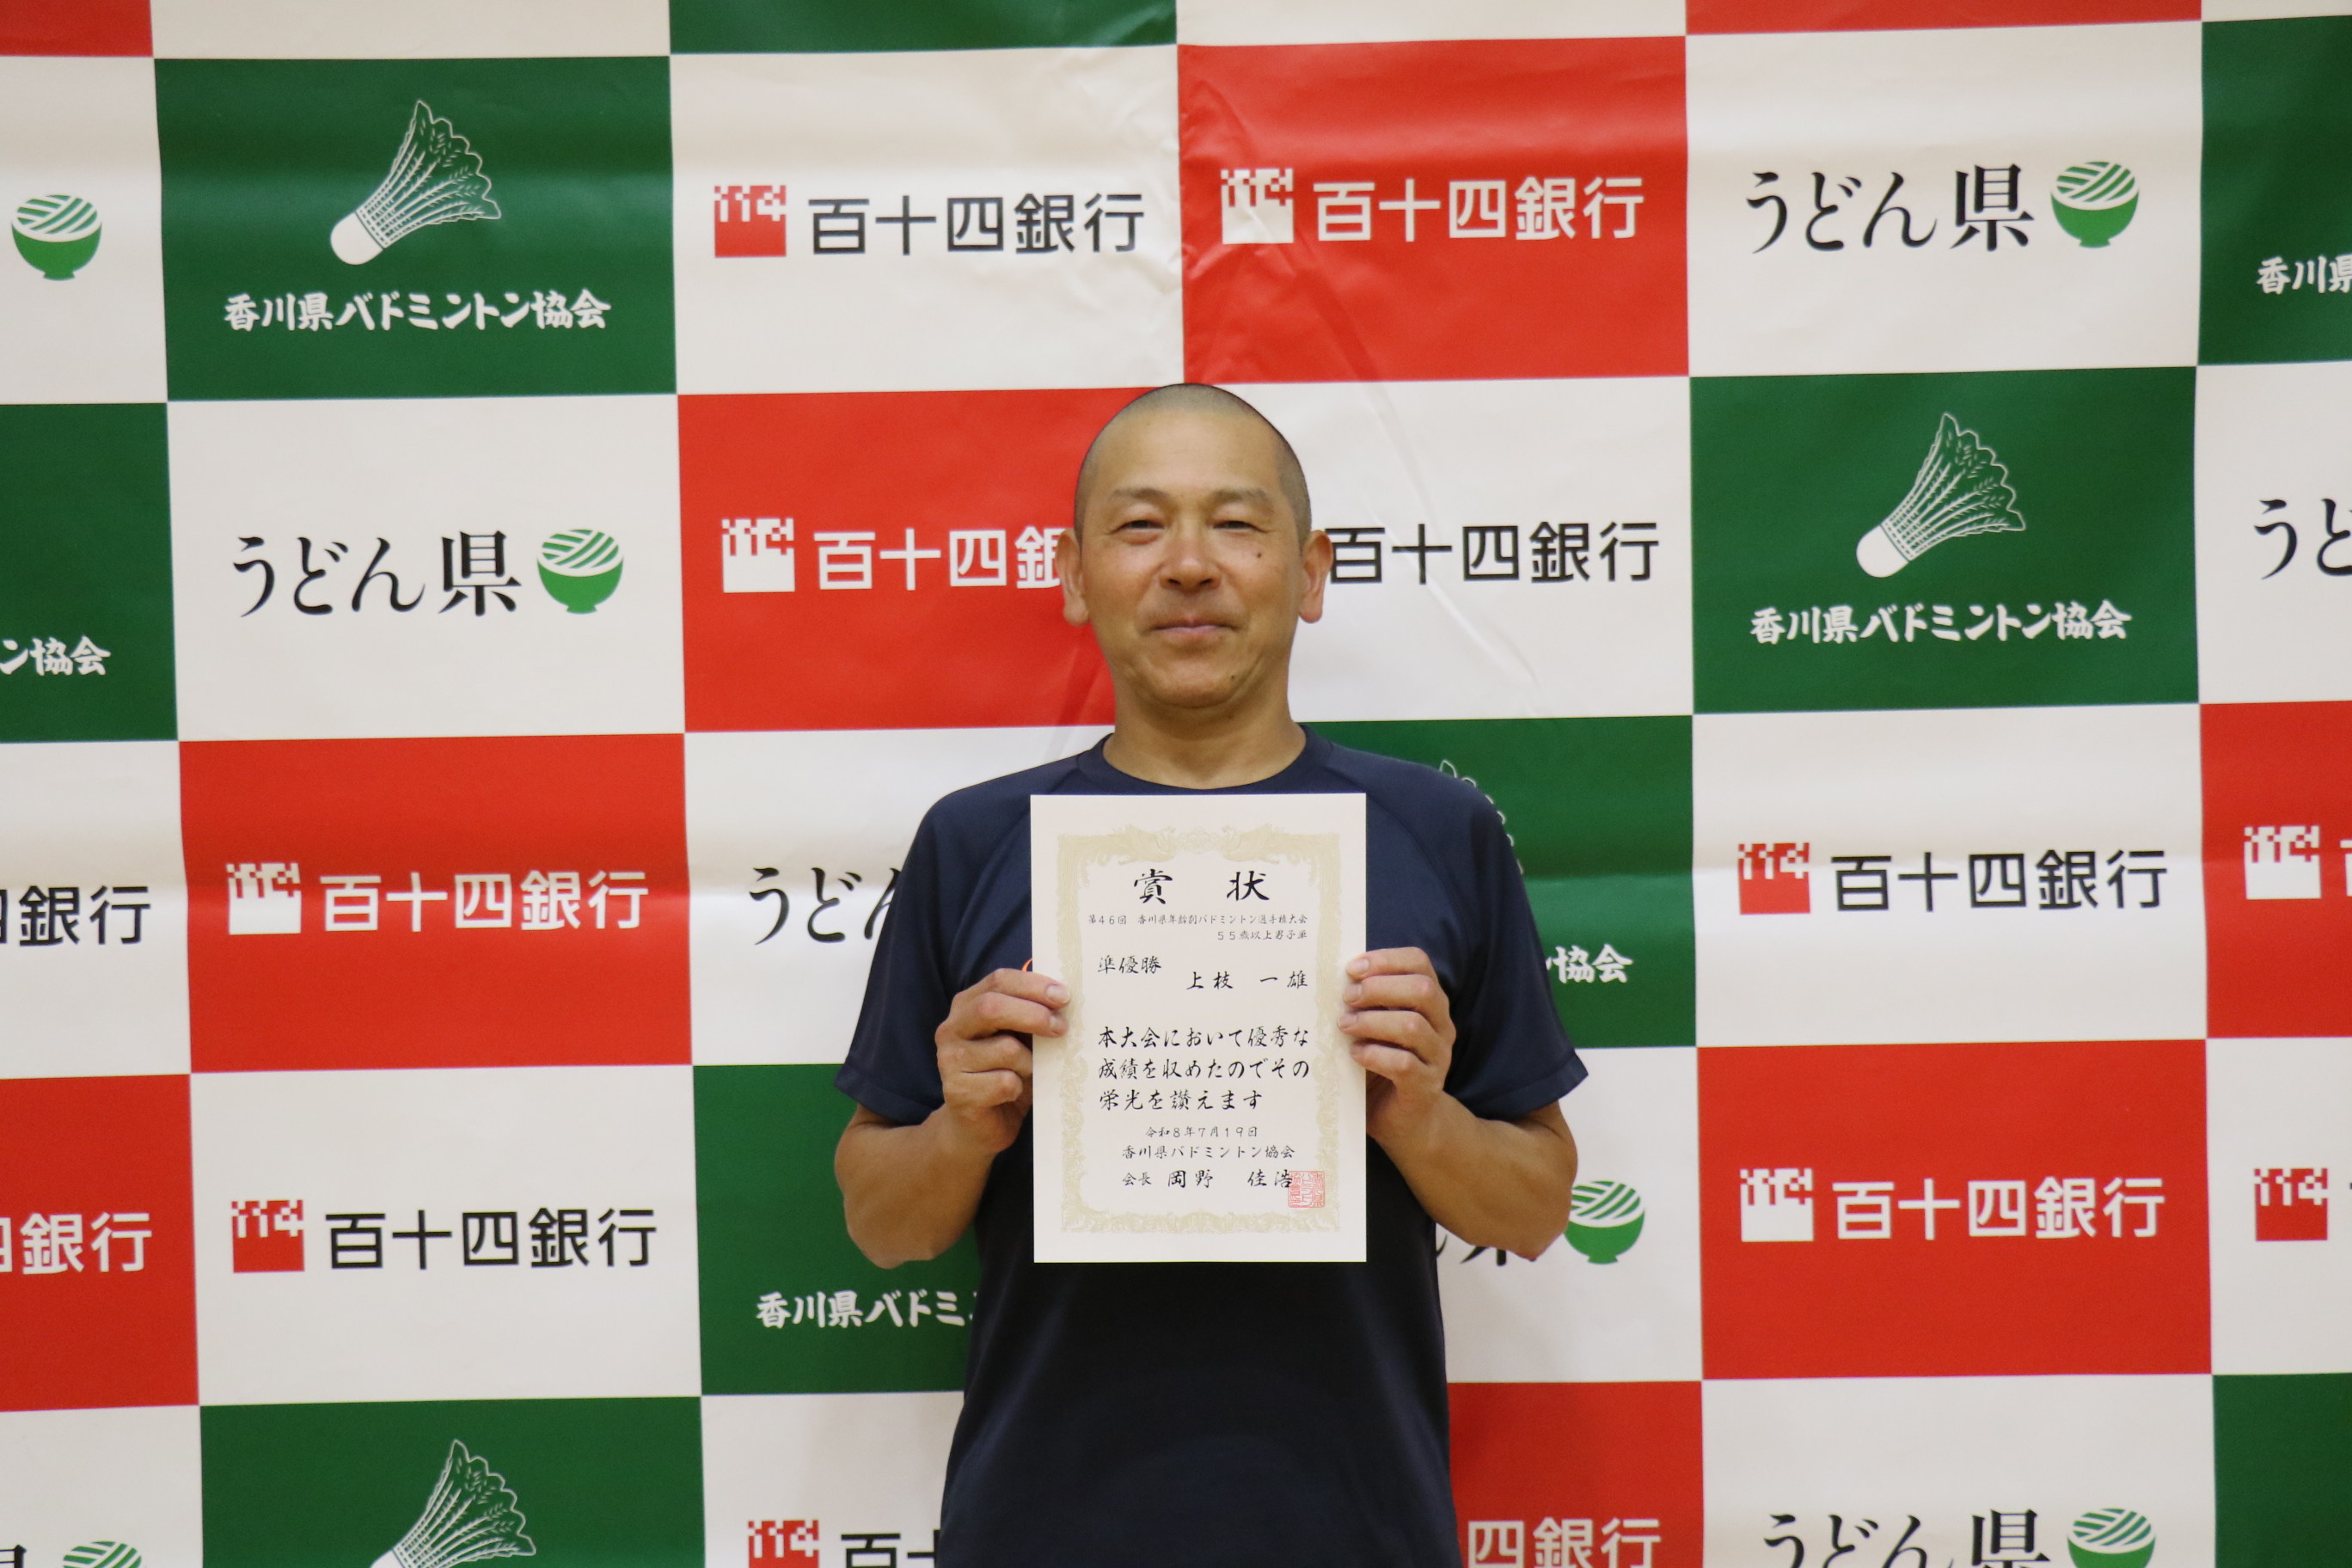 百十四銀行
百十四銀行
うどん県
香川県バドミントン協会
香川県
うどん県
百十四銀
百十四銀行
香川県バドミントン協会
うど
ン協会
百十四銀行
うどん
百十四銀行
銀行
協会
賞状
第46回 香川県年齢別バドミントン選手権大会
55歳以上男子単
準優勝
上枝 一雄
本大会において優秀な
成績を収めたのでその
栄光を讃えます
令和8年7月19日
香川県バドミントン協会
会長 岡野 佳浩
四銀行
百十四銀行
香川県バドミン
百十四銀行
百十
四銀行
うどん県